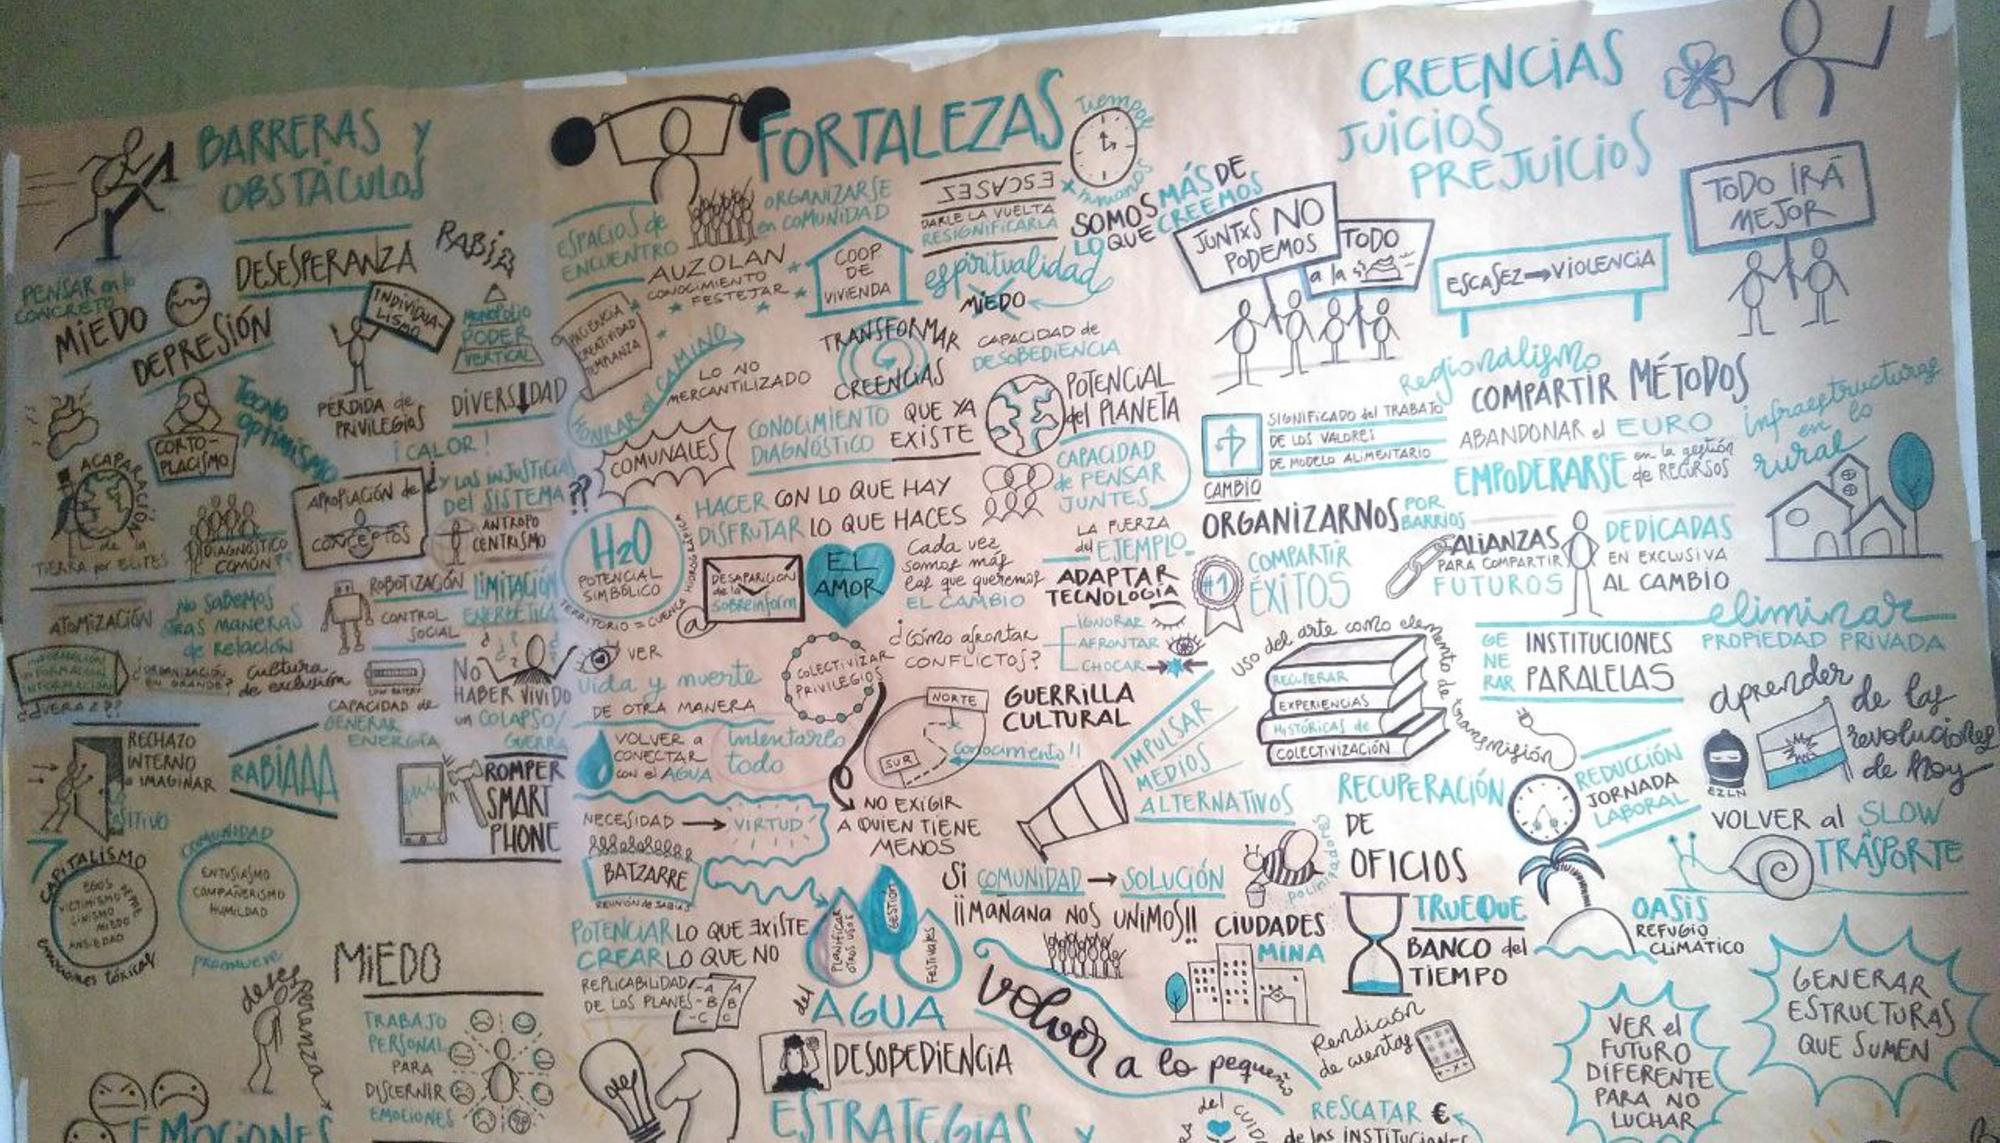 BARRERAS y
OBSTÁCULOS
DESESPERANZA
RABIA
PENSAR en lo
CONCRETO
MIEDO
DEPRESIÓN
INDIVIDUA-
LISMO
MONOPOLIO
PODER
VERTICAL
PÉRDIDA de
PRIVILEGIOS
DIVERSIDAD
CORTO-
PLACISMO
Tecno
optimismo
¡CALOR!
¿Y LAS INJUSTICIAS
DEL SISTEMA??
ACAPARACIÓN
de la
TIERRA por ELITES
¿DIAGNÓSTICO
COMÚN?
APROPIACIÓN de
CONCEPTOS
ANTROPO
CENTRISMO
ATOMIZACIÓN
No SABEMOS
OTRAS MANERAS
de RELACIÓN
ROBOTIZACIÓN
CONTROL
SOCIAL
LIMITACIÓN
ENERGÉTICA
¿ORGANIZACIÓN
EN GRANDE?
Cultura
de exclusión
LOW BATERY
CAPACIDAD de
GENERAR
ENERGÍA
NO
HABER VIVIDO
un COLAPSO/
GUERRA
RECHAZO
INTERNO
a IMAGINAR
RABIAAA
ROMPER
SMART
PHONE
CAPITALISMO
EGOS
VICTIMISMO
CINISMO
MIEDO
ANSIEDAD
EMOCIONES TÓXICAS
COMUNIDAD
ENTUSIASMO
COMPAÑERISMO
HUMILDAD
promueve
desesperanza
MIEDO
TRABAJO
PERSONAL
PARA
DISCERNIR
EMOCIONES
EMOCIONES
FORTALEZAS
Tiempos
humanos
ESPACIOS de
ENCUENTRO
ORGANIZARSE
en COMUNIDAD
ESCASES
DARLE LA VUELTA
RESIGNIFICARLA
SOMOS MÁS DE
LO QUE CREEMOS
AUZOLAN
CONOCIMIENTO
FESTEJAR
COOP
DE
VIVIENDA
espiritualidad
MIEDO
PACIENCIA
CREATIVIDAD
TEMPLANZA
HONRAR el CAMINO
LO NO
MERCANTILIZADO
TRANSFORMAR
CREENCIAS
CAPACIDAD de
DESOBEDIENCIA
COMUNALES
CONOCIMIENTO
DIAGNÓSTICO
QUE YA
EXISTE
POTENCIAL
del PLANETA
CAPACIDAD
de PENSAR
JUNTES
HACER CON LO QUE HAY
DISFRUTAR LO QUE HACES
H2O
POTENCIAL
SIMBÓLICO
TERRITORIO = CUENCA HIDROGRÁFICA
DESAPARICIÓN
de la
SOBREINFORM
@
EL
AMOR
Cada vez
somos más
las que queremos
EL CAMBIO
LA FUERZA
del EJEMPLO
ADAPTAR
TECNOLOGÍA
VER
Vida y muerte
DE OTRA MANERA
COLECTIVIZAR
PRIVILEGIOS
¿Cómo afrontar
CONFLICTOS?
IGNORAR
AFRONTAR
CHOCAR
VOLVER a
CONECTAR
con el AGUA
Intentarlo
todo
NORTE
SUR
Conocimiento!!
GUERRILLA
CULTURAL
NECESIDAD → VIRTUD
BATZARRE
REUNIÓN DE SABIAS
NO EXIGIR
A QUIEN TIENE
MENOS
IMPULSAR
MEDIOS
ALTERNATIVOS
POTENCIAR LO QUE EXISTE
CREAR LO QUE NO
REPLICABILIDAD
DE LOS PLANES
-A
-B
-C
A
B
C
PLANIFICAR
OTROS USOS
GESTIÓN
FESTIVALES
del
AGUA
SI COMUNIDAD → SOLUCIÓN
¡¡MAÑANA NOS UNIMOS!!
DESOBEDIENCIA
volver a lo pequeño
ESTRATEGIAS y
CREENCIAS
JUICIOS
PREJUICIOS
JUNTXS NO
PODEMOS
TODO
a la
ESCASEZ → VIOLENCIA
TODO IRÁ
MEJOR
Regionalismo
COMPARTIR MÉTODOS
CAMBIO
SIGNIFICADO del TRABAJO
DE LOS VALORES
DE MODELO ALIMENTARIO
ABANDONAR el EURO
EMPODERARSE en la gestión
de RECURSOS
infraestructuras
en lo
rural
ORGANIZARNOS POR
BARRIOS
#1
COMPARTIR
ÉXITOS
ALIANZAS
PARA COMPARTIR
FUTUROS
DEDICADAS
EN EXCLUSIVA
AL CAMBIO
Uso del arte como elemento de transmisión
RECUPERAR
EXPERIENCIAS
HISTÓRICAS de
COLECTIVIZACIÓN
GENERAR
INSTITUCIONES
PARALELAS
eliminar
PROPIEDAD PRIVADA
aprender
de las
revoluciones
de hoy
EZLN
RECUPERACIÓN
DE
OFICIOS
REDUCCIÓN
JORNADA
LABORAL
VOLVER al SLOW
TRÁSPORTE
CIUDADES
MINA
TRUEQUE
BANCO del
TIEMPO
OASIS
REFUGIO
CLIMÁTICO
Rendición
de cuentas
VER el
FUTURO
DIFERENTE
PARA NO
LUCHAR
GENERAR
ESTRUCTURAS
QUE SUMEN
del
RESCATAR €
de las INSTITUCIONES